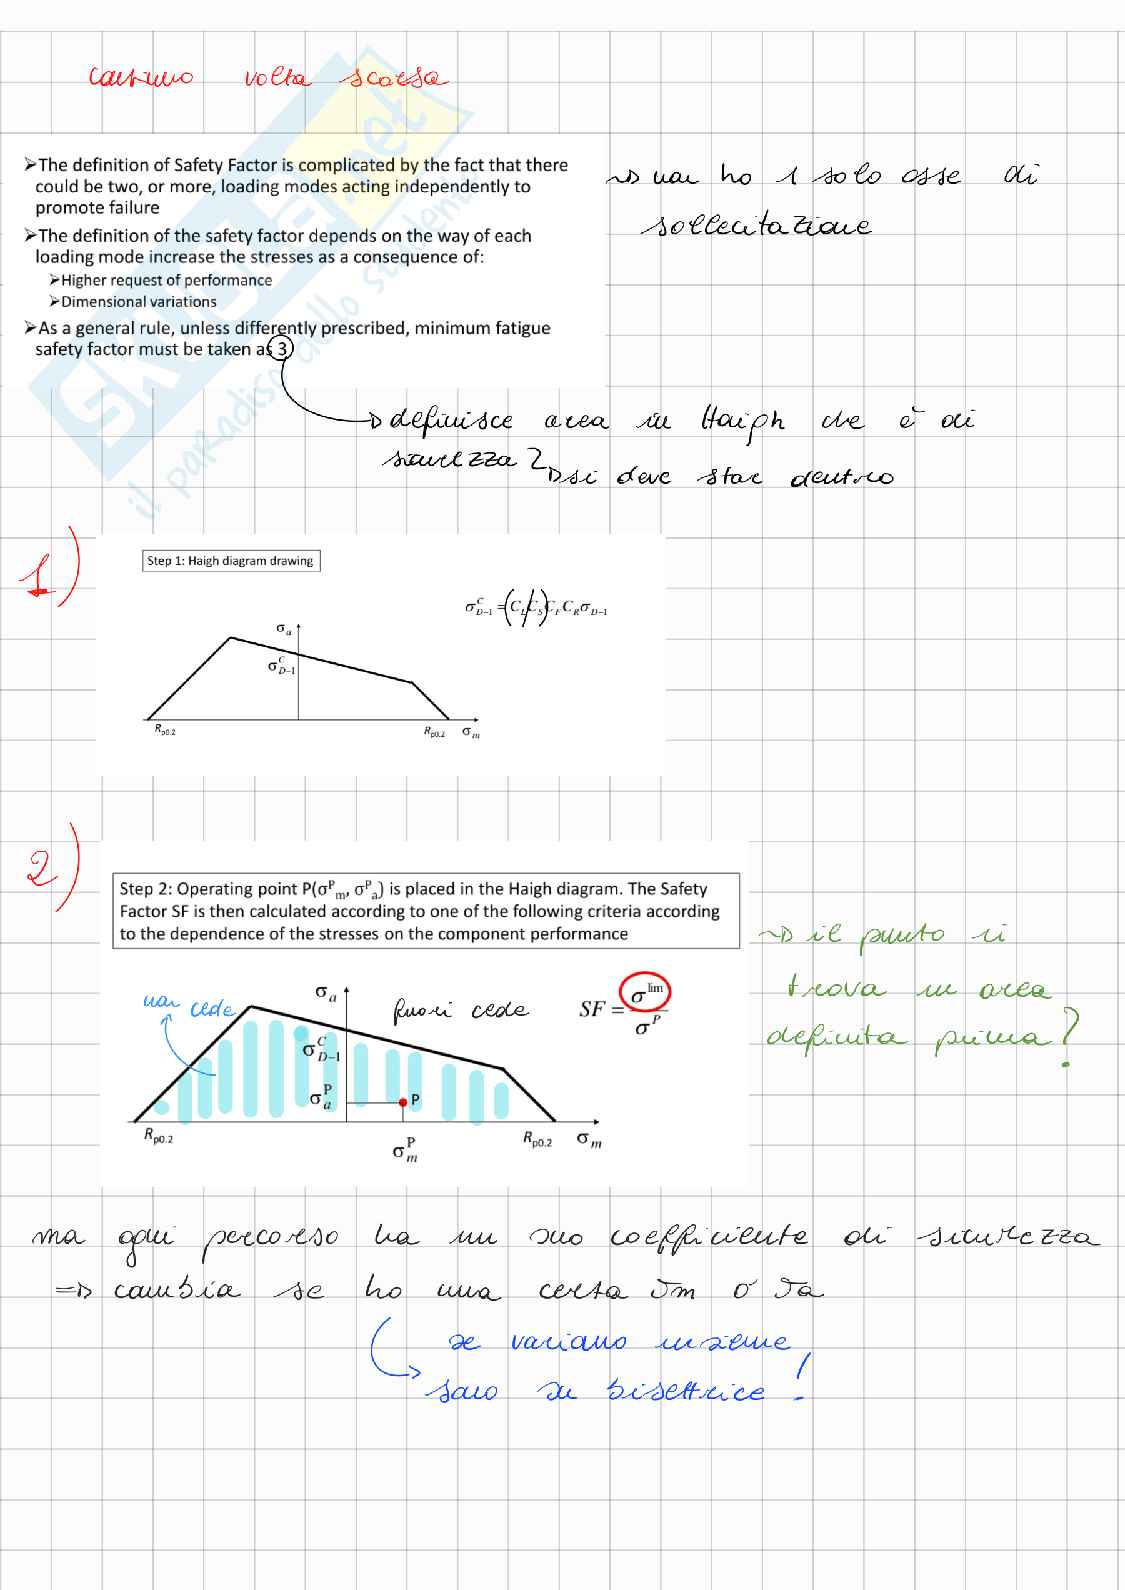 continuo volta scorsa
➢The definition of Safety Factor is complicated by the fact that there
could be two, or more, loading modes acting independently to
promote failure
➢The definition of the safety factor depends on the way of each
loading mode increase the stresses as a consequence of:
➢Higher request of performance
➢Dimensional variations
➢As a general rule, unless differently prescribed, minimum fatigue
safety factor must be taken as 3
non ho 1 solo asse di
sollecitazione
definisce area in Haigh che è di
sicurezza
si deve star dentro
SKUOLA.net
il paradiso dello studente
1)
Step 1: Haigh diagram drawing
σ^C_{D−1} = (C_L C_S) C_F C_R σ_{D−1}
σ_a
σ^C_{D−1}
R_{p0.2}
R_{p0.2} σ_m
2)
Step 2: Operating point P(σ^P_m, σ^P_a) is placed in the Haigh diagram. The Safety
Factor SF is then calculated according to one of the following criteria according
to the dependence of the stresses on the component performance
il punto si
trova in area
definita prima?
non cede
σ_a
fuori cede
SF = σ^{lim} / σ^P
σ^C_{D−1}
σ^P_a
P
R_{p0.2}
σ^P_m
R_{p0.2} σ_m
ma ogni percorso ha un suo coefficiente di sicurezza
=> cambia se ho una certa σm o σa
se variano insieme
sarò su bisettrice!